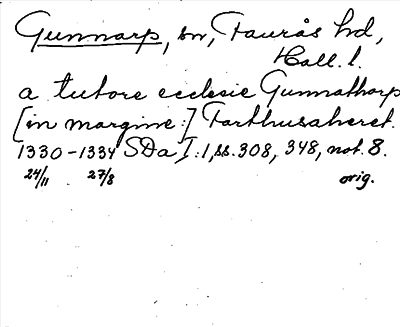 Gunnarp, sn, Faurås hd,
Hall. l.
a tutore ecclesie Gunnathorp
[in margine:] Farthusaheret.
1330-1334 SDa I:1, ss. 308, 348, not. 8.
24/11 27/8 orig.